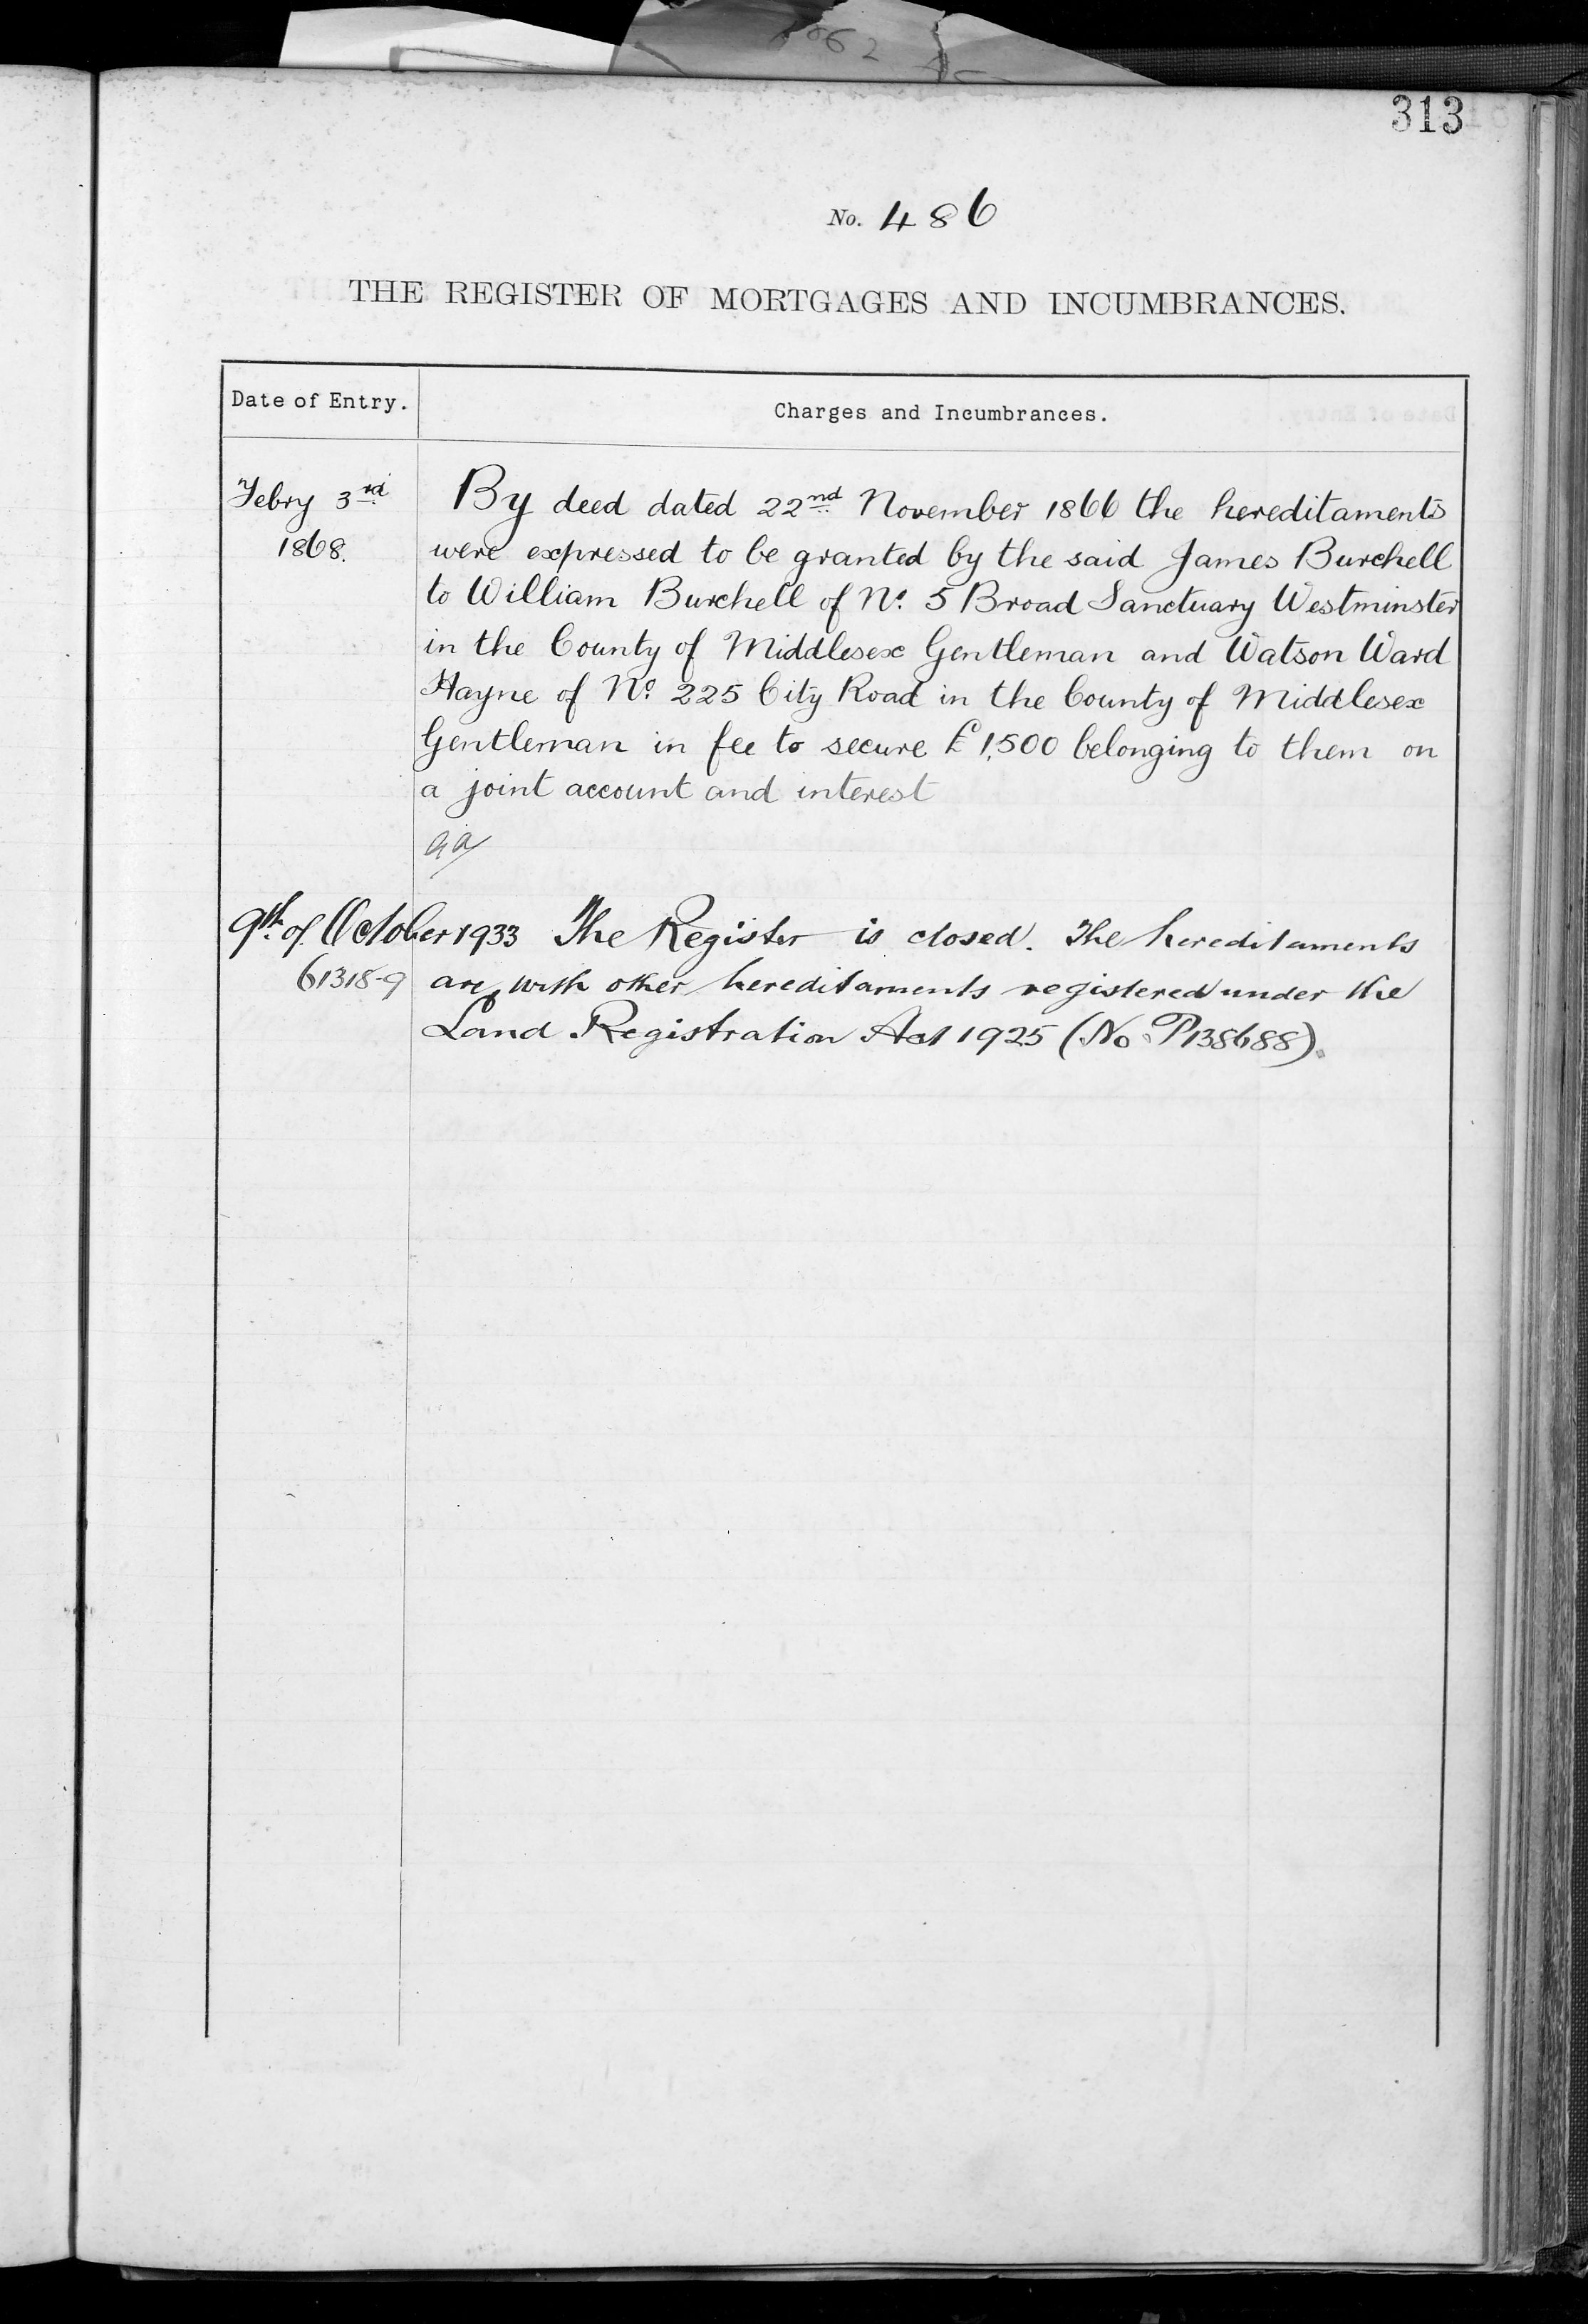 313
No. 486
THE REGISTER OF MORTGAGES AND INCUMBRANCES.
Date of Entry.
Charges and Incumbrances.
Febry 3rd
1868.
By deed dated 22nd November 1866 the hereditaments
were expressed to be granted by the said James Burchell
to William Burchell of No. 5 Broad Sanctuary Westminster
in the County of Middlesex Gentleman and Watson Ward
Hayne of No. 225 City Road in the County of Middlesex
Gentleman in fee to secure £1,500 belonging to them on
a joint account and interest
9th. of October 1933 The Register is closed. The hereditaments
61318-9 are, with other hereditaments registered under the
Land Registration Act 1925 (No P138688).